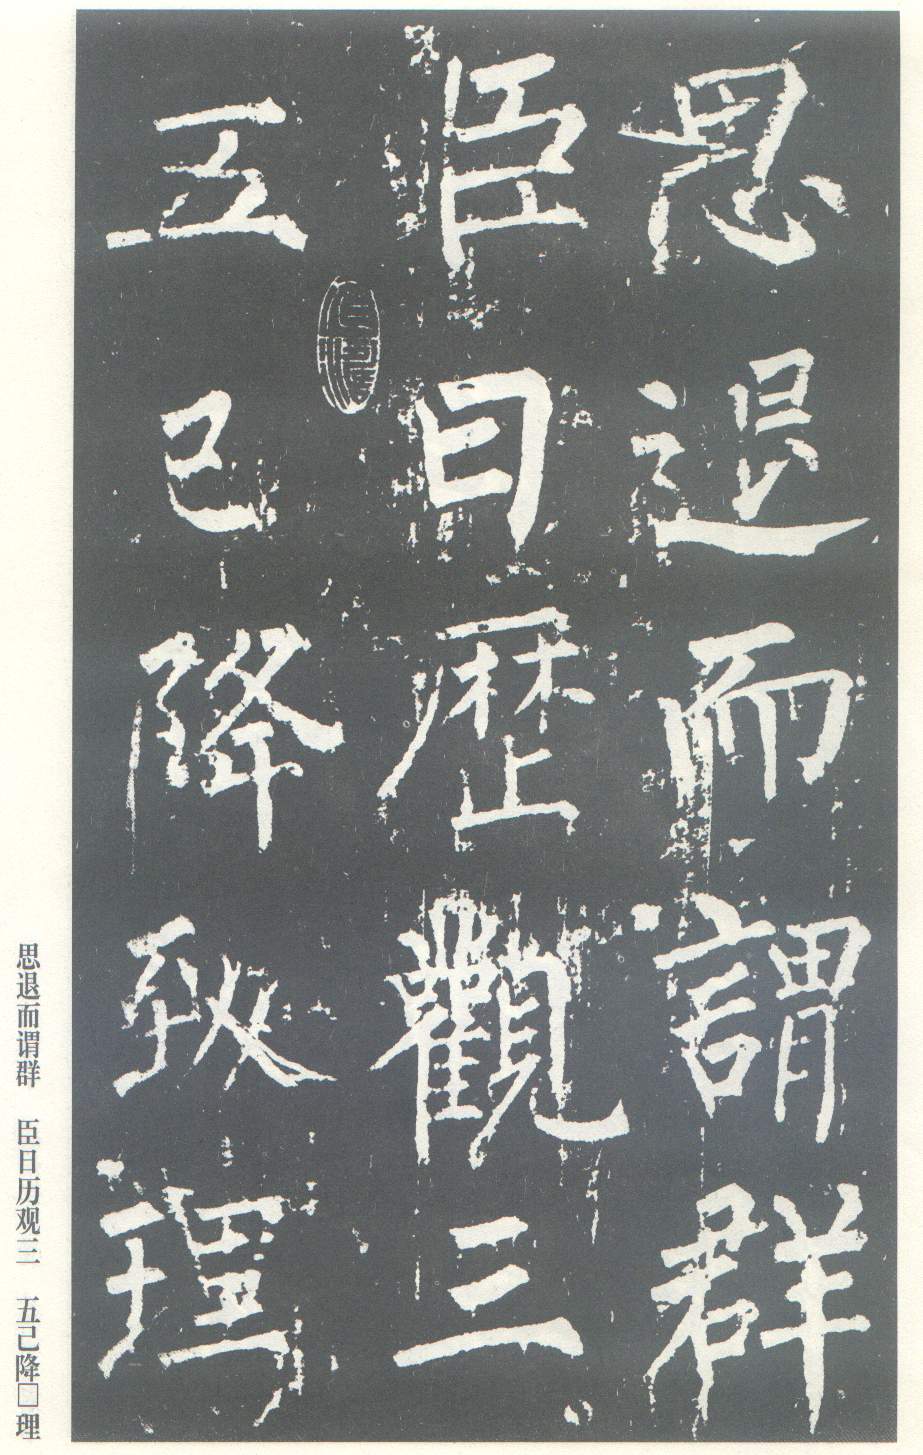 思退而謂群
臣曰歷觀三
五已降致理
思退而谓群 臣日历观三 五己降□理